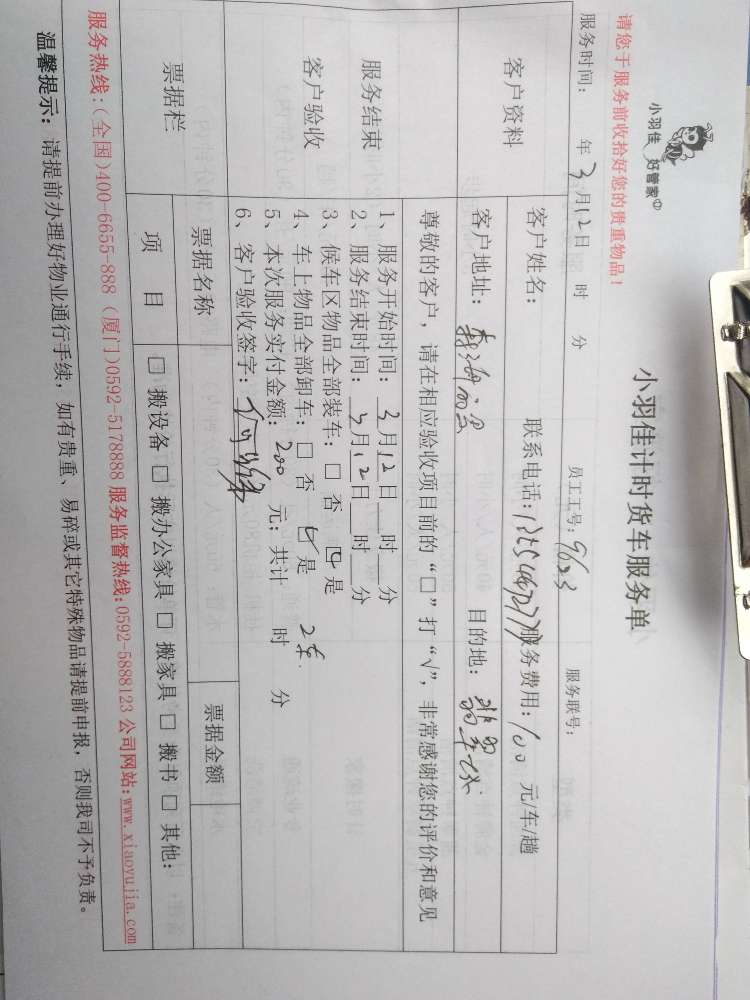 小羽佳 好管家
小羽佳计时货车服务单
请您于服务前收拾好您的贵重物品!
服务时间: 年 3月12日 时 分 员工工号: 9623 服务联号:
客户资料
客户姓名: 联系电话: 服务费用: 100 元/车/趟
客户地址: 目的地:
尊敬的客户,请在相应验收项目前的“□”打“√”,非常感谢您的评价和意见
服务结束
客户验收
1、服务开始时间: 3月12日 时 分
2、服务结束时间: 3月12日 时 分
3、候车区物品全部装车: □ 否 ☑ 是
4、车上物品全部卸车: □ 否 ☑ 是 2车
5、本次服务实付金额: 200 元; 共计 时 分
6、客户验收签字:
票据栏
票据名称 票据金额
项 目 □ 搬设备 □ 搬办公家具 □ 搬家具 □ 搬书 □ 其他:
服务热线:(全国)400-6655-888 (厦门)0592-5178888 服务监督热线:0592-5888123 公司网站:www.xiaoyujia.com
温馨提示: 请提前办理好物业通行手续,如有贵重、易碎或其它特殊物品请提前申报,否则我司不予负责。